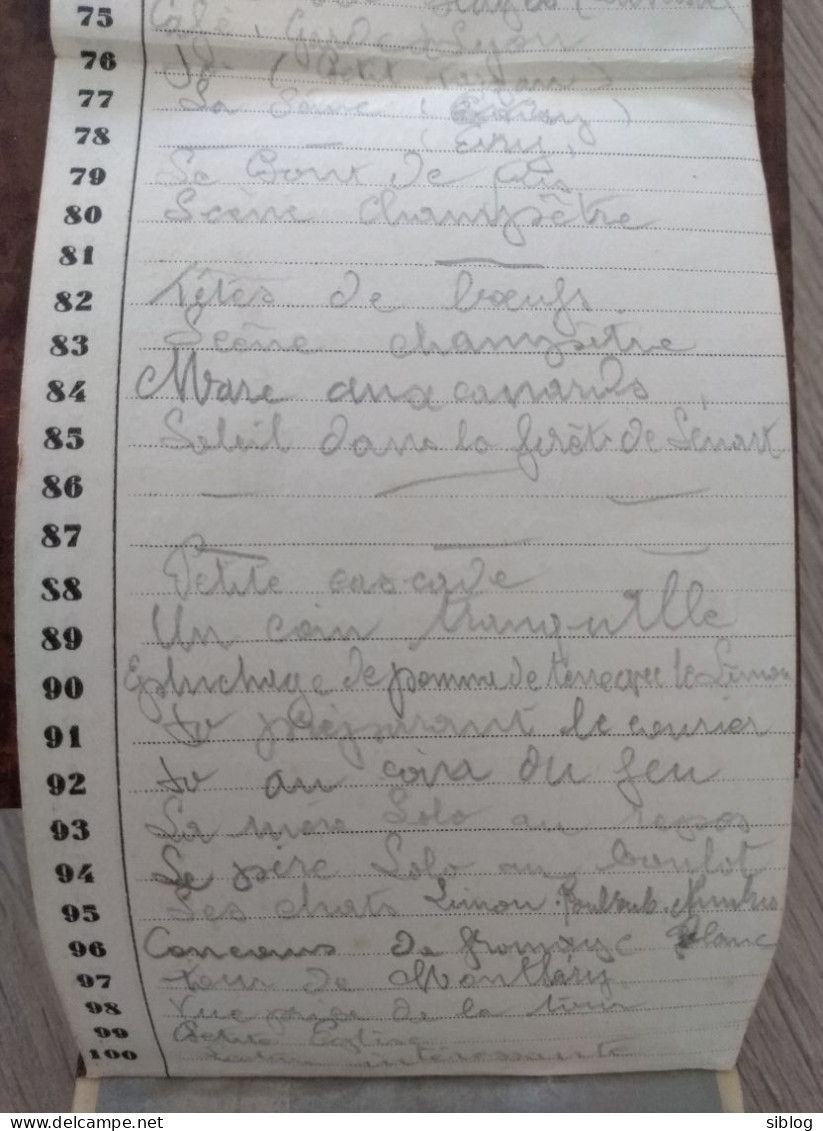 75
Café, Gare de Lyon
76
(Petit
77 La Seine (
78 — — (Evry)
79 Le Bout de
80 Scène champêtre
81 —
82 Têtes de bœufs.
83 Scène champêtre
84 Mare aux canards
85 Soleil dans la forêt de Sénart
86 — — —
87 — — —
88 Petite cascade
89 Un coin tranquille
90 Epluchage de pomme de terre avec le Simon
91 préparant le courier
92 au coin du feu
93 La mère Lolo au repos
94 Le père Lolo au boulot
95 Les chats Limon
96 Concours de fromage blanc
97 tour de Montlhéry
98 Vue prise de la tour
99 Petite Eglise
100 intéressante
siblog